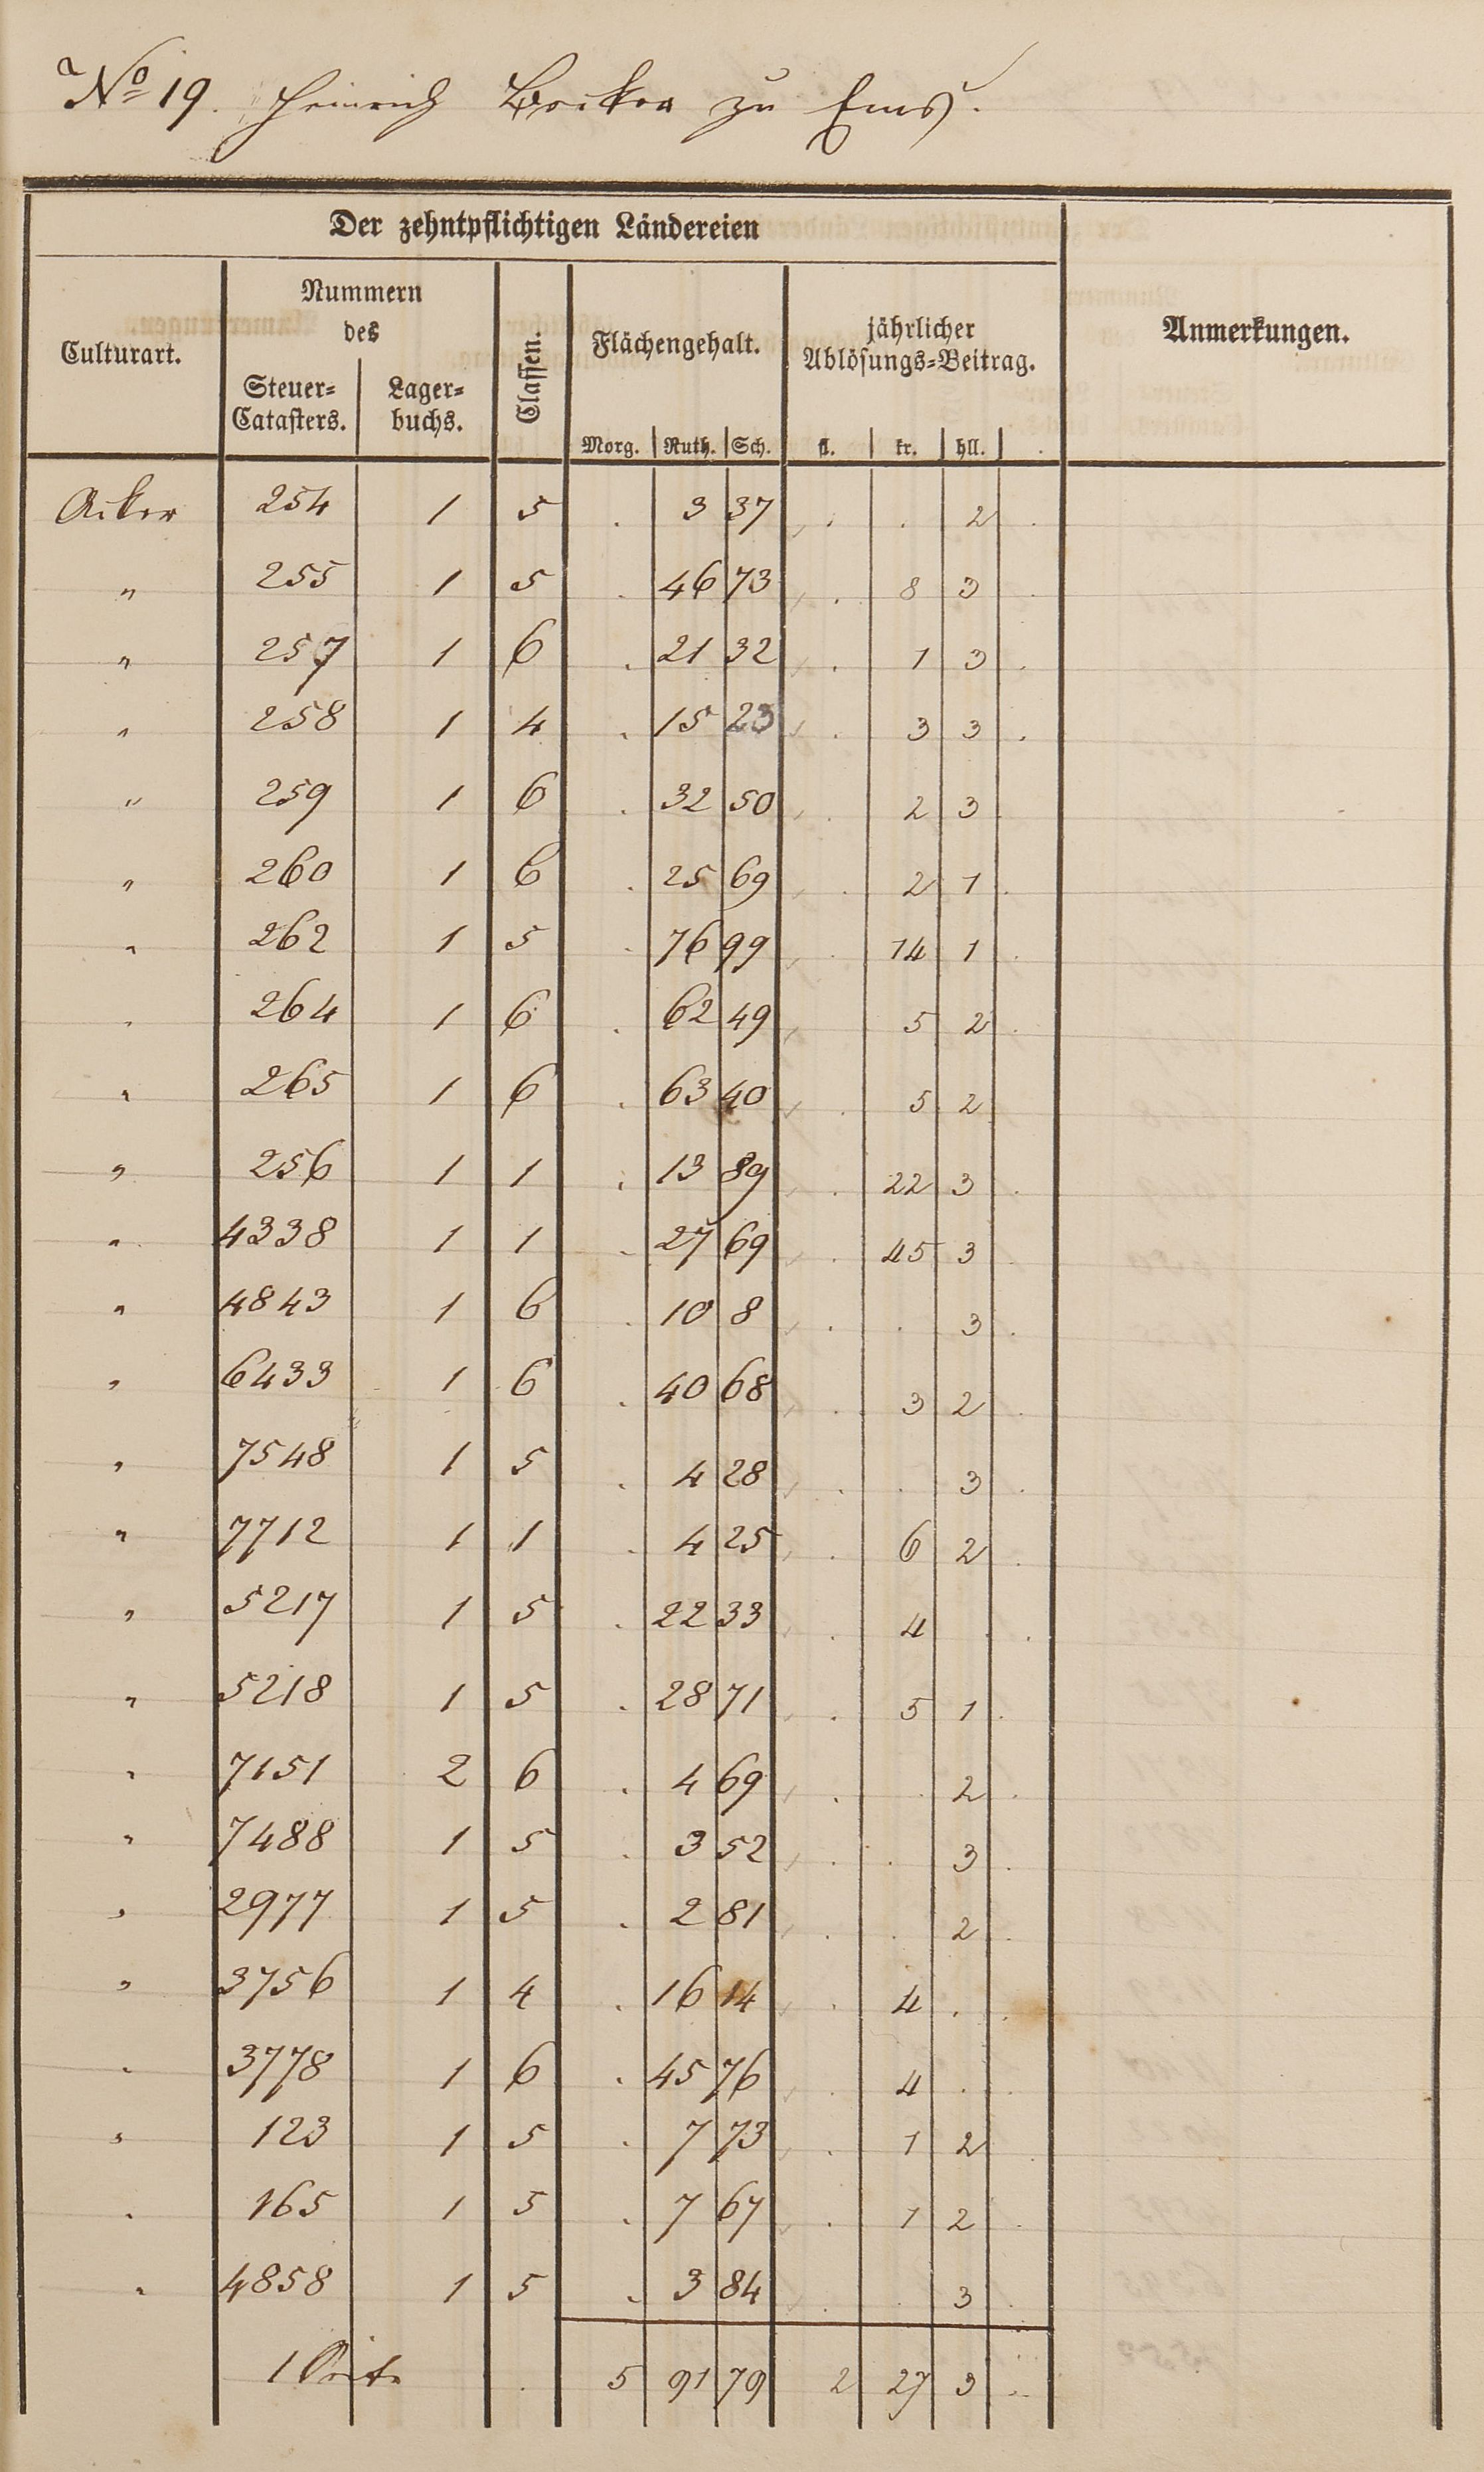 No 19. Heinrich Becker zu Ems.
Der zehntpflichtigen Ländereien
Culturart.
Nummern des
Steuer-Catasters.
Lager-buchs.
Classen.
Flächengehalt.
Morg. Ruth. Sch.
jährlicher Ablösungs-Beitrag.
fl. kr. hll.
Anmerkungen.
Acker 254 1 5 . 3 37 . . 2 .
" 255 1 5 . 46 73 . 8 3 .
" 257 1 6 . 21 32 . 1 3 .
" 258 1 4 . 15 23 . 3 3 .
" 259 1 6 . 32 50 . 2 3
" 260 1 6 . 25 69 . 2 1 .
" 262 1 5 . 76 99 . 14 1 .
" 264 1 6 . 62 49 5 2 .
" 265 1 6 . 63 40 . 5 2
" 256 1 1 . 13 89 . 22 3 .
" 4338 1 1 . 27 69 . 45 3 .
" 4843 1 6 . 10 8 . . 3 .
" 6433 1 6 . 40 68 . 3 2 .
" 7548 1 5 . 4 28 . . 3 .
" 7712 1 1 . 4 25 . 6 2 .
" 5217 1 5 . 22 33 . 4 . .
" 5218 1 5 . 28 71 . 5 1 .
" 7151 2 6 . 4 69 . . 2 .
" 7488 1 5 . 3 52 . . 3 .
" 2977 1 5 . 2 81 . . 2 .
" 3756 1 4 . 16 14 . 4 . .
" 3778 1 6 . 45 76 . 4 . .
" 123 1 5 . 7 73 . 1 2
" 165 1 5 . 7 67 . 1 2 .
" 4858 1 5 . 3 84 . . 3 .
1 . 5 91 79 2 27 3 .